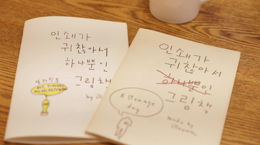 인쇄가
귀찮아서
하나뿐인
그림책
인쇄가
귀찮아서
하나뿐인
그림책
A strange
day
made by